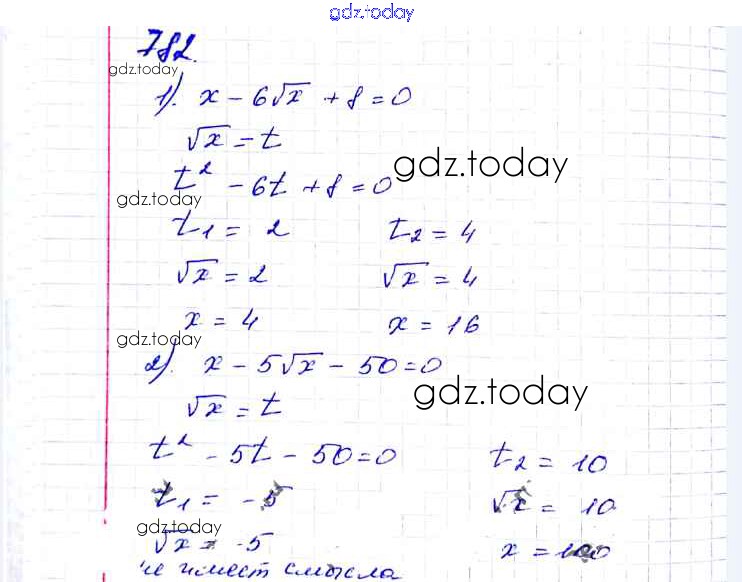 gdz.today
782.
gdz.today
1). x - 6√x + 8 = 0
√x = t
gdz.today
t² - 6t + 8 = 0
gdz.today
t₁ = 2 t₂ = 4
√x = 2 √x = 4
x = 4 x = 16
gdz.today
2). x - 5√x - 50 = 0
gdz.today
√x = t
t² - 5t - 50 = 0 t₂ = 10
t₁ = -5 √x = 10
gdz.today
√x = -5 x = 100
не имеет смысла